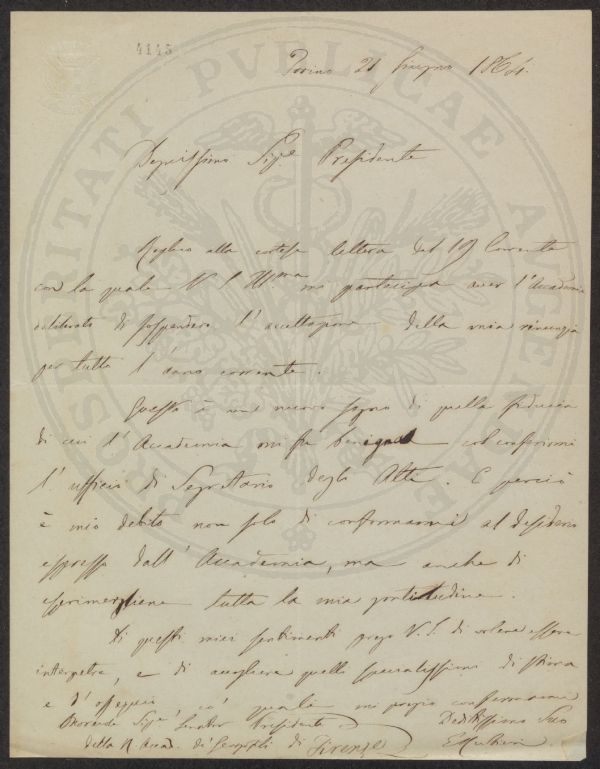 4145
Torino 21 Giugno 1864.
Degnissimo Sig.e Presidente
alla cortese lettera del 19 Corrente
con la quale V. S. Ill.ma mi partecipa aver l'Accademia
deliberato di sospendere l'accettazione della mia rinunzia
per tutto l'anno corrente.
Questo è un nuovo segno di quella fiducia
di cui l'Accademia mi fu benigna col conferirmi
l'ufficio di Segretario degli Atti. E perciò
è mio debito non solo di conformarmi al desiderio
espresso dall'Accademia, ma anche di
esprimergliene tutta la mia gratitudine.
Di questi miei sentimenti prego V. S. di volersi essere
interpetre, e di accogliere quelli specialissimi di stima
e d'ossequio, co' quali mi pregio confermarmi
Onorevole Sig.e Senator Presidente
della R. Accad. de' Georgofili di Firenze
Devotissimo Suo
PROSPERITATI PVBLICAE AVGENDAE